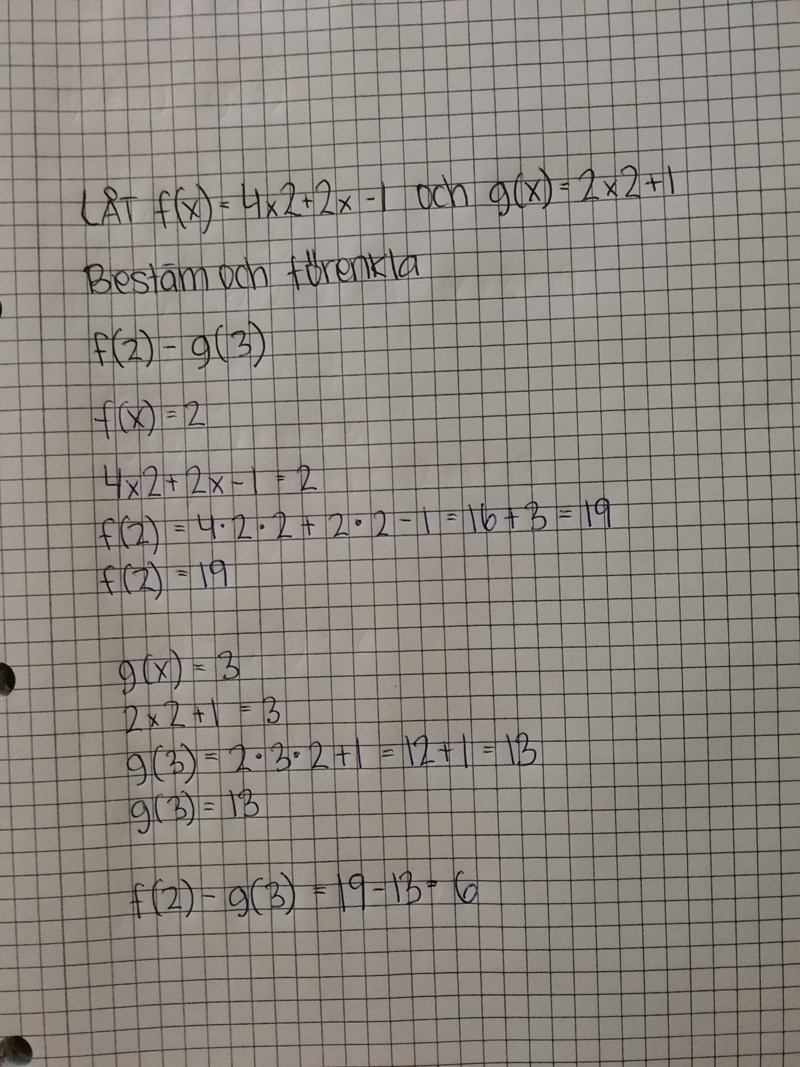 LÅT f(x) = 4x2+2x-1 och g(x) = 2x2+1
Bestäm och förenkla
f(2) - g(3)
f(x) = 2
4x2+2x-1 = 2
f(2) = 4·2·2 + 2·2 - 1 = 16+3 = 19
f(2) = 19
g(x) = 3
2x2+1 = 3
g(3) = 2·3·2+1 = 12+1 = 13
g(3) = 13
f(2) - g(3) = 19-13 = 6